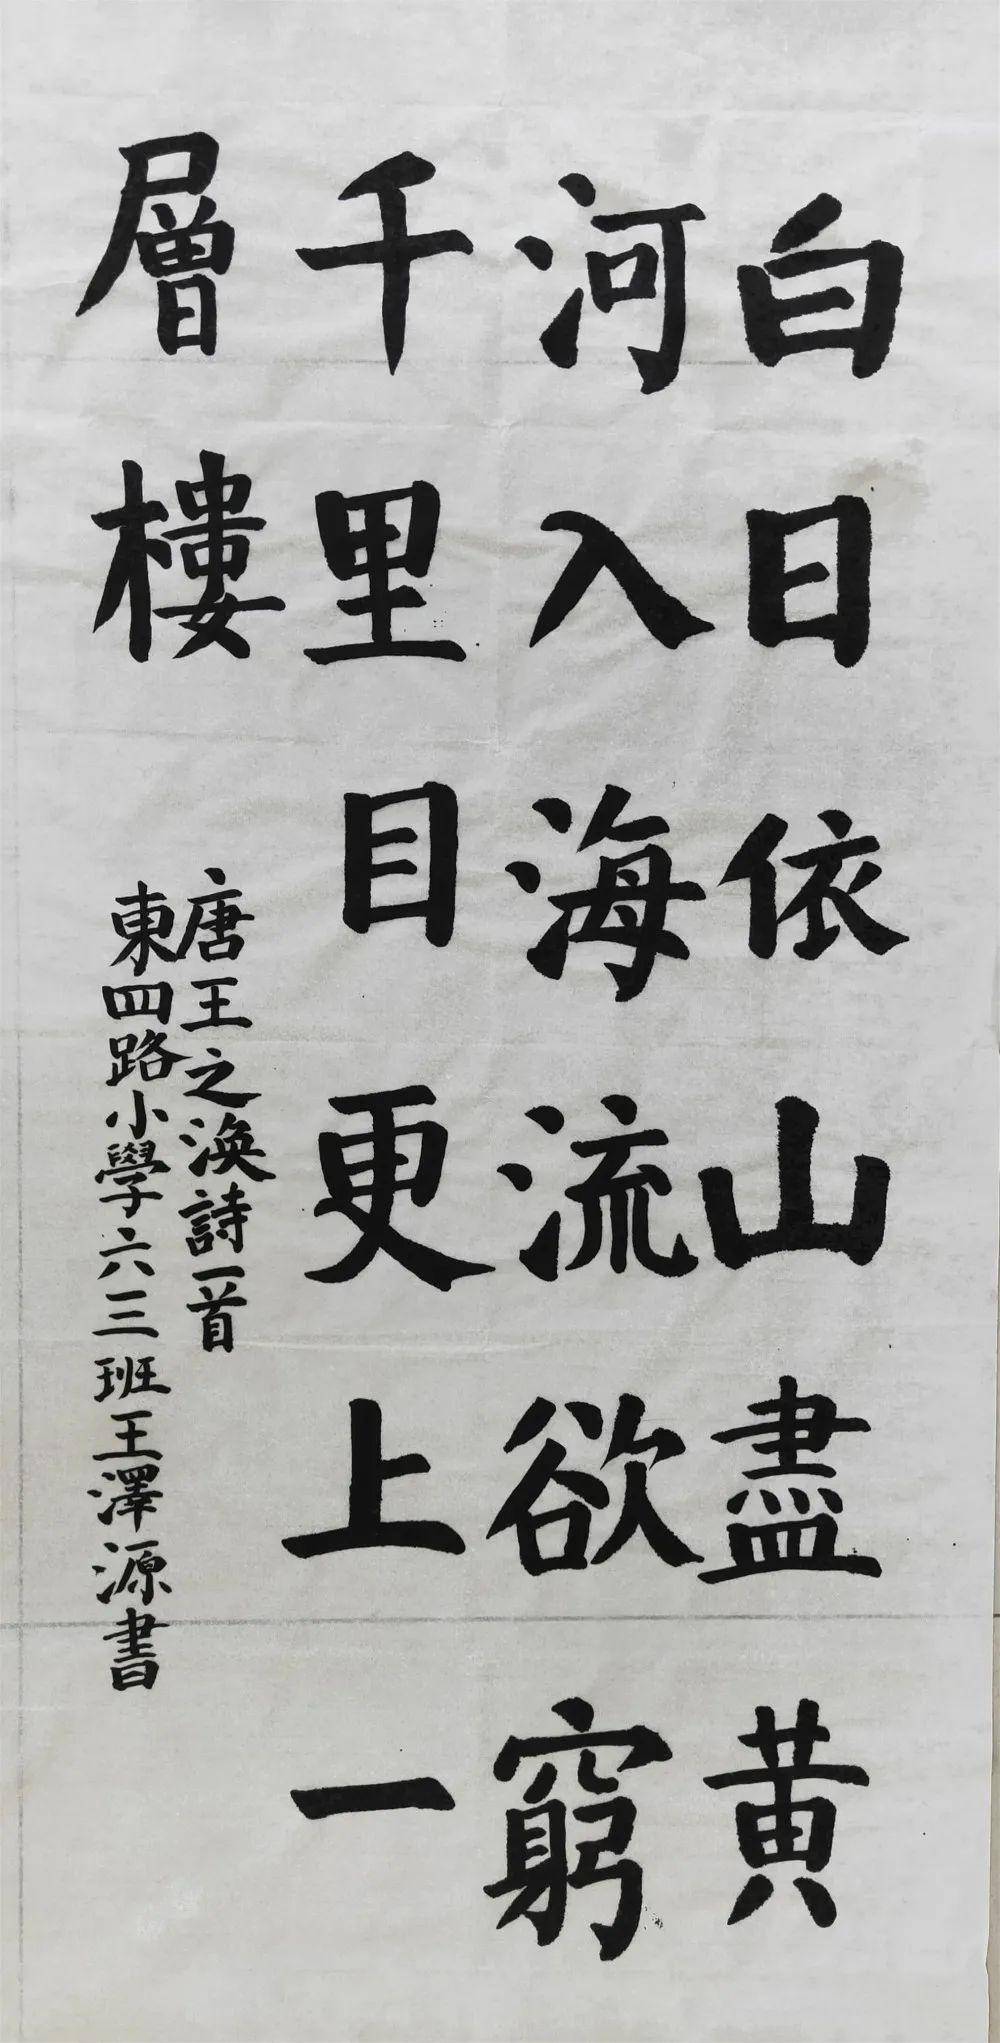 白日依山盡黄
河入海流欲窮
千里目更上一
層樓
唐王之渙詩一首
東四路小學六三班王澤源書